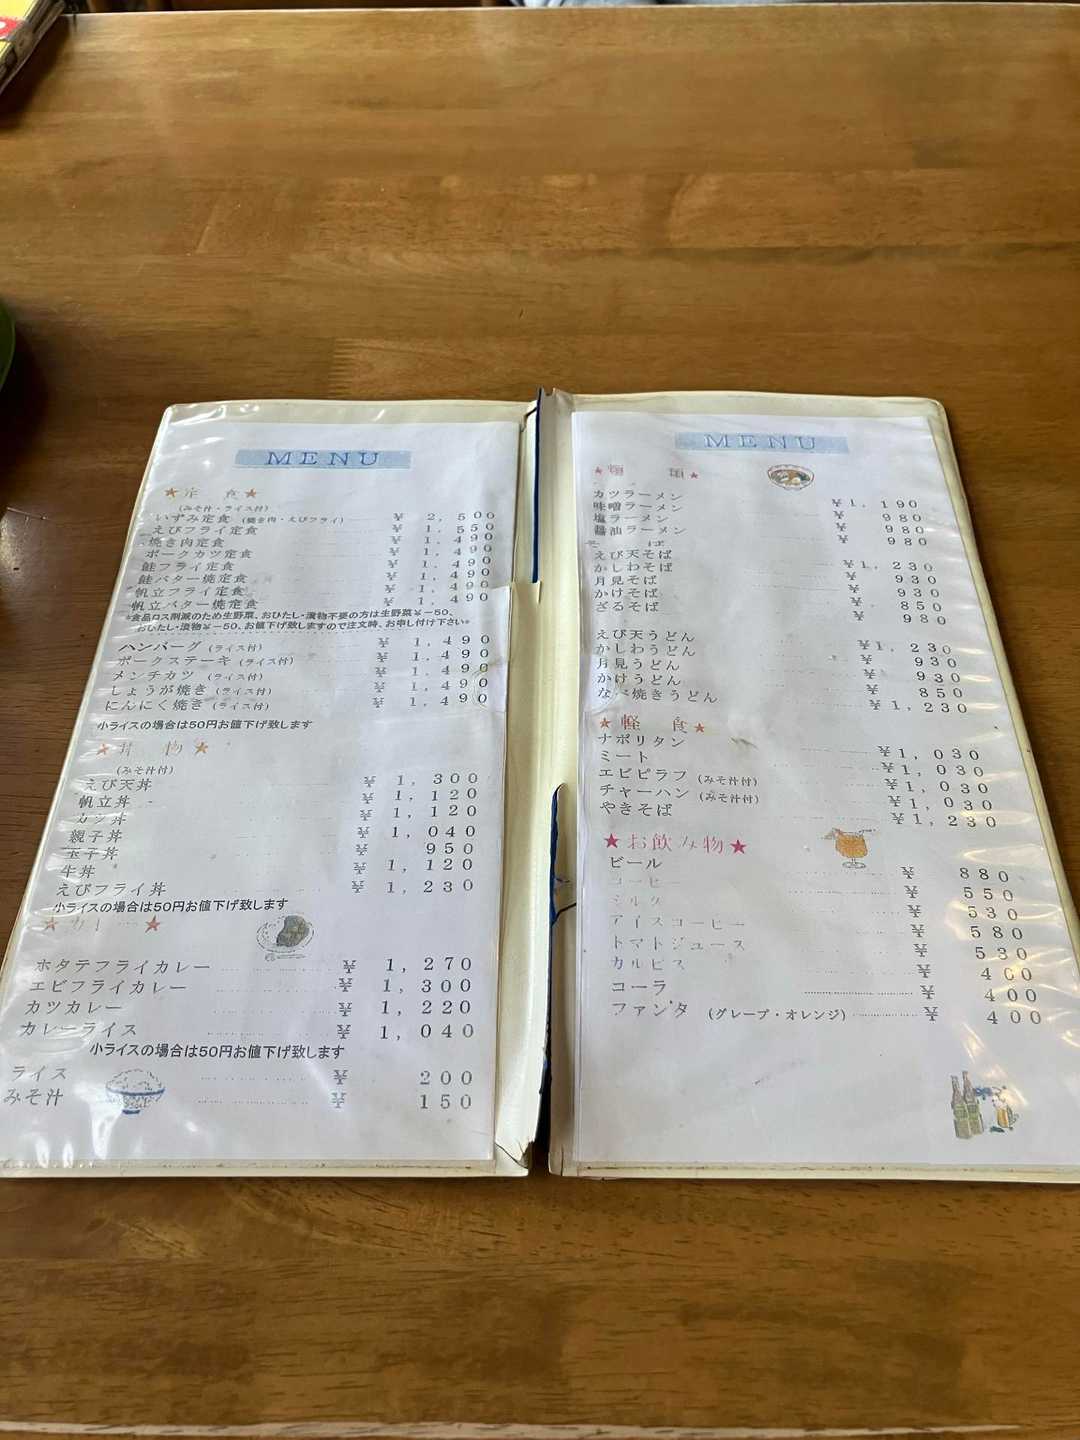 MENU
★定 食★
(みそ汁・ライス付)
いずみ定食 (焼き肉・えびフライ) ¥ 2,500
えびフライ定食 ¥ 1,550
焼き肉定食 ¥ 1,490
ポークカツ定食 ¥ 1,490
鮭フライ定食 ¥ 1,490
鮭バター焼定食 ¥ 1,490
帆立フライ定食 ¥ 1,490
帆立バター焼定食 ¥ 1,490
*食品ロス削減のため生野菜、おひたし・漬物不要の方は生野菜¥-50、
おひたし・漬物¥-50、お値下げ致しますので注文時、お申し付け下さい。
ハンバーグ (ライス付) ¥ 1,490
ポークステーキ (ライス付) ¥ 1,490
メンチカツ (ライス付) ¥ 1,490
しょうが焼き (ライス付) ¥ 1,490
にんにく焼き (ライス付) ¥ 1,490
小ライスの場合は50円お値下げ致します
★丼 物★
(みそ汁付)
えび天丼 ¥ 1,300
帆立丼 ¥ 1,120
カツ丼 ¥ 1,120
親子丼 ¥ 1,040
玉子丼 ¥ 950
牛丼 ¥ 1,120
えびフライ丼 ¥ 1,230
小ライスの場合は50円お値下げ致します
★カレー★
ホタテフライカレー ¥ 1,270
エビフライカレー ¥ 1,300
カツカレー ¥ 1,220
カレーライス ¥ 1,040
小ライスの場合は50円お値下げ致します
ライス ¥ 200
みそ汁 ¥ 150
MENU
★麺 類★
カツラーメン ¥1,190
味噌ラーメン ¥ 980
塩ラーメン ¥ 980
醤油ラーメン ¥ 980
そ ば
えび天そば ¥1,230
かしわそば ¥ 930
月見そば ¥ 930
かけそば ¥ 850
ざるそば ¥ 980
えび天うどん ¥1,230
かしわうどん ¥ 930
月見うどん ¥ 930
かけうどん ¥ 850
なべ焼きうどん ¥1,230
★軽 食★
ナポリタン ¥1,030
ミート ¥1,030
エビピラフ (みそ汁付) ¥1,030
チャーハン (みそ汁付) ¥1,030
やきそば ¥1,230
★お飲み物★
ビール ¥ 880
コーヒー ¥ 550
ミルク ¥ 530
アイスコーヒー ¥ 580
トマトジュース ¥ 530
カルピス ¥ 400
コーラ ¥ 400
ファンタ (グレープ・オレンジ) ¥ 400